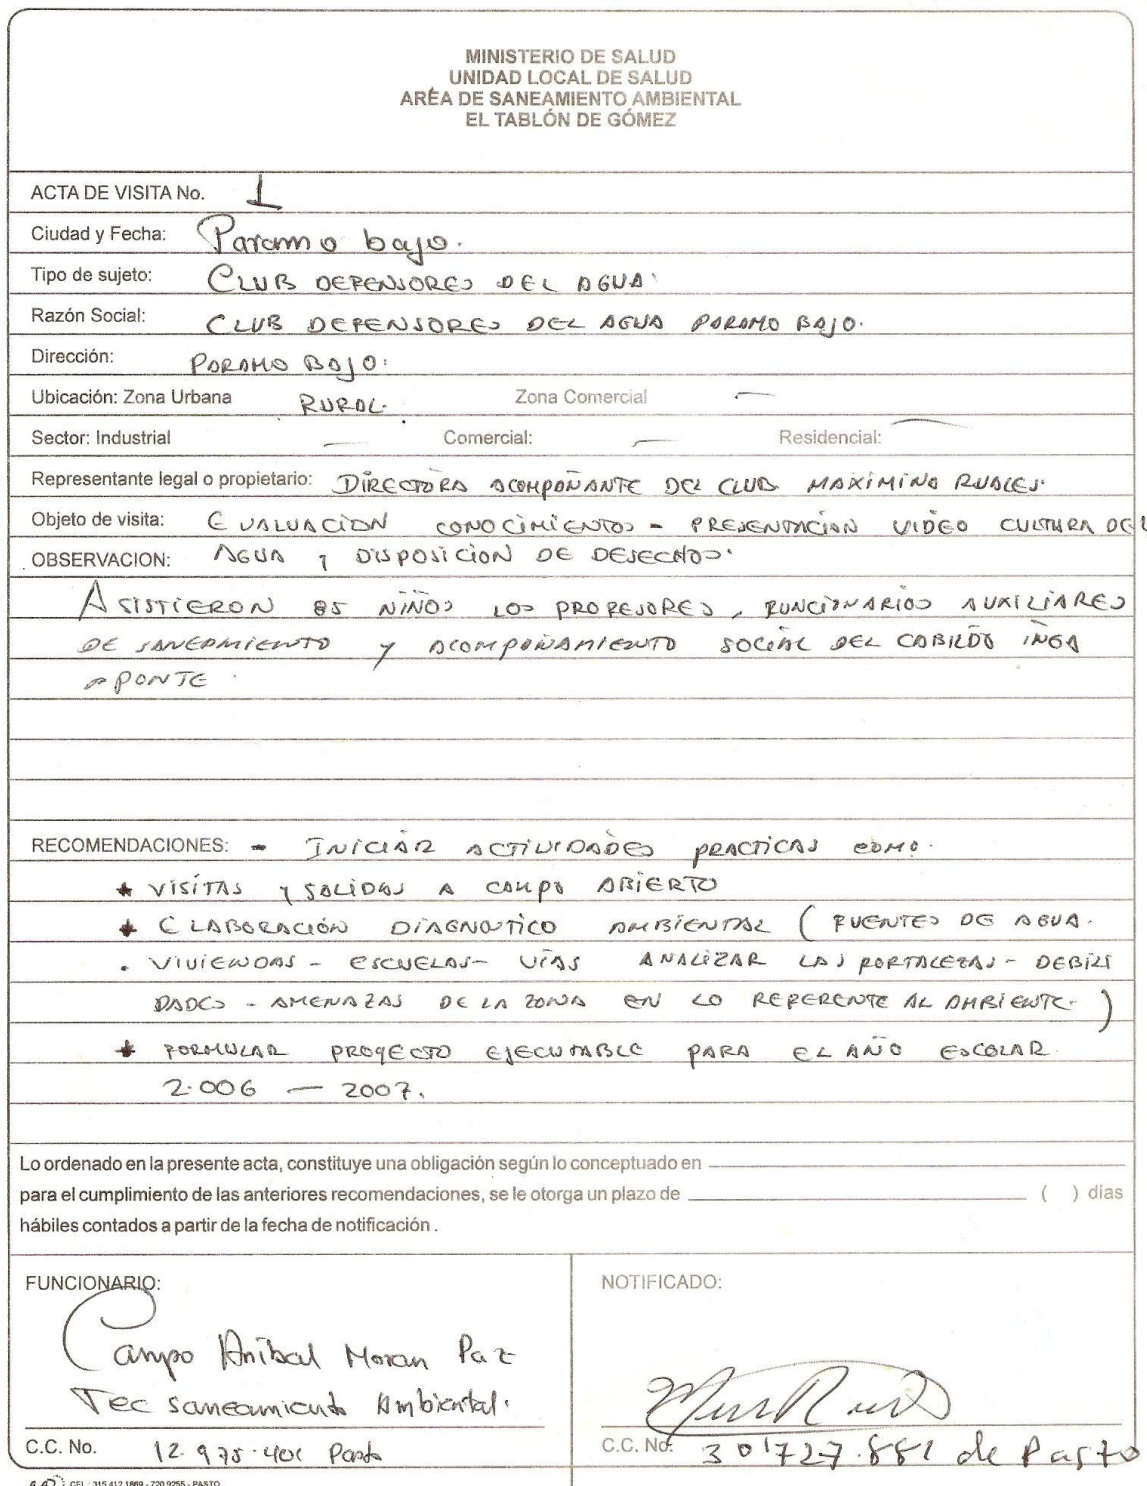 MINISTERIO DE SALUD
UNIDAD LOCAL DE SALUD
ARÉA DE SANEAMIENTO AMBIENTAL
EL TABLÓN DE GÓMEZ
ACTA DE VISITA No. 1
Ciudad y Fecha: Paramo bajo.
Tipo de sujeto: CLUB DEFENSORES DEL AGUA.
Razón Social: CLUB DEFENSORES DEL AGUA PARAMO BAJO.
Dirección: PARAMO BAJO.
Ubicación: Zona Urbana RURAL. Zona Comercial —
Sector: Industrial — Comercial: — Residencial: —
Representante legal o propietario: DIRECTORA ACOMPAÑANTE DEL CLUB MAXIMINA RUALES.
Objeto de visita: EVALUACION CONOCIMIENTOS - PRESENTACION VIDEO CULTURA DEL
OBSERVACION: AGUA y DISPOSICION DE DESECHOS.
ASISTIERON 85 NIÑOS LOS PROFESORES, FUNCIONARIOS AUXILIARES
DE SANEAMIENTO y ACOMPAÑAMIENTO SOCIAL DEL CABILDO INGA
APONTE.
RECOMENDACIONES: - INICIAR ACTIVIDADES PRACTICAS COMO.
* VISITAS y SALIDAS A CAMPO ABIERTO
* ELABORACIÓN DIAGNOSTICO AMBIENTAL (FUENTES DE AGUA.
. VIVIENDAS - ESCUELAS - VÍAS ANALIZAR LAS FORTALEZAS - DEBILI
DADES - AMENAZAS DE LA ZONA EN LO REFERENTE AL AMBIENTE.)
* FORMULAR PROYECTO EJECUTABLE PARA EL AÑO ESCOLAR
2.006 — 2007.
Lo ordenado en la presente acta, constituye una obligación según lo conceptuado en
para el cumplimiento de las anteriores recomendaciones, se le otorga un plazo de ( ) días
hábiles contados a partir de la fecha de notificación .
FUNCIONARIO: NOTIFICADO:
Campo Anibal Moran Paz
Tec saneamiento Ambiental.
C.C. No. 12.975.401 Pasto C.C. No. 30'727.881 de Pasto
CEL.: 315 412 1869 - 720 9255 - PASTO